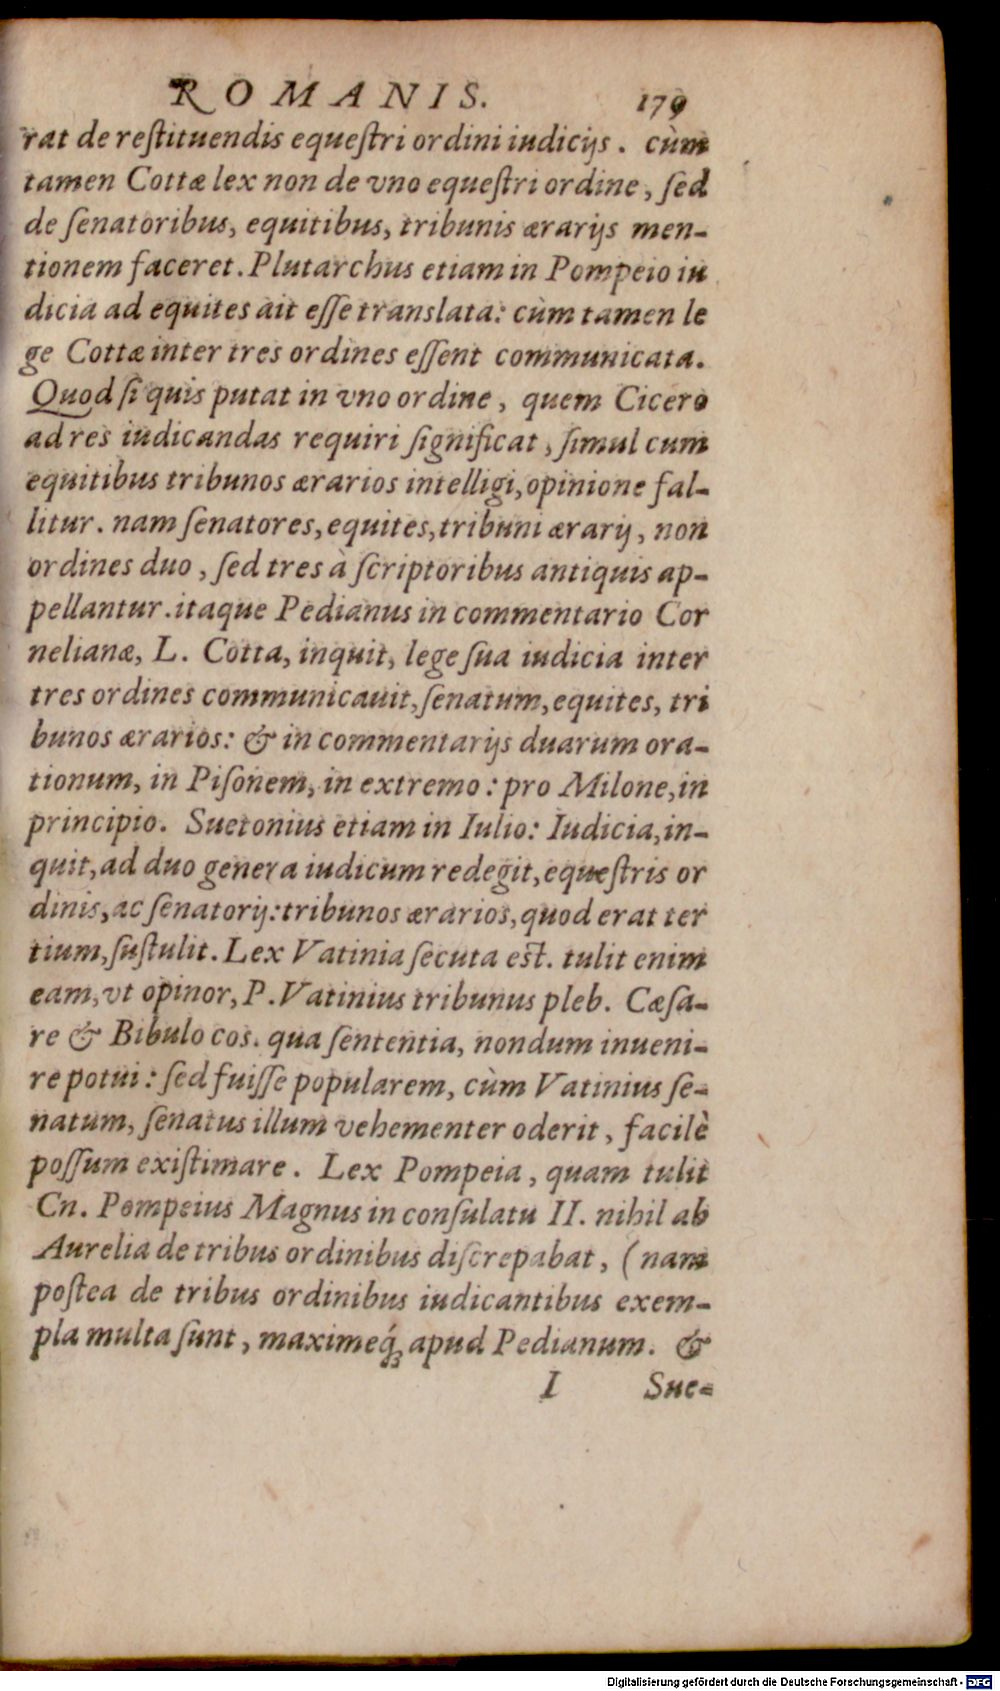 ROMANIS. 179
rat de reſtituendis equeſtri ordini iudicijs. cùm
tamen Cottæ lex non de vno equeſtri ordine, ſed
de ſenatoribus, equitibus, tribunis ærarijs men-
tionem faceret. Plutarchus etiam in Pompeio iu
dicia ad equites ait eſſe translata: cùm tamen le
ge Cottæ inter tres ordines eſſent communicata.
Quod ſi quis putat in vno ordine, quem Cicero
ad res iudicandas requiri ſignificat, ſimul cum
equitibus tribunos ærarios intelligi, opinione fal-
litur. nam ſenatores, equites, tribuni ærarij, non
ordines duo, ſed tres à ſcriptoribus antiquis ap-
pellantur. itaque Pedianus in commentario Cor
nelianæ, L. Cotta, inquit, lege ſua iudicia inter
tres ordines communicauit, ſenatum, equites, tri
bunos ærarios: & in commentarijs duarum ora-
tionum, in Piſonem, in extremo: pro Milone, in
principio. Suetonius etiam in Iulio: Iudicia, in-
quit, ad duo genera iudicum redegit, equeſtris or
dinis, ac ſenatorij: tribunos ærarios, quod erat ter
tium, ſuſtulit. Lex Vatinia ſecuta eſt. tulit enim
eam, vt opinor, P. Vatinius tribunus pleb. Cæſa-
re & Bibulo cos. qua ſententia, nondum inueni-
re potui: ſed fuiſſe popularem, cùm Vatinius ſe-
natum, ſenatus illum vehementer oderit, facilè
poſſum exiſtimare. Lex Pompeia, quam tulit
Cn. Pompeius Magnus in conſulatu II. nihil ab
Aurelia de tribus ordinibus diſcrepabat, (nam
poſtea de tribus ordinibus iudicantibus exem-
pla multa ſunt, maximeq́; apud Pedianum. &
I Sue-
Digitalisierung gefördert durch die Deutsche Forschungsgemeinschaft - DFG